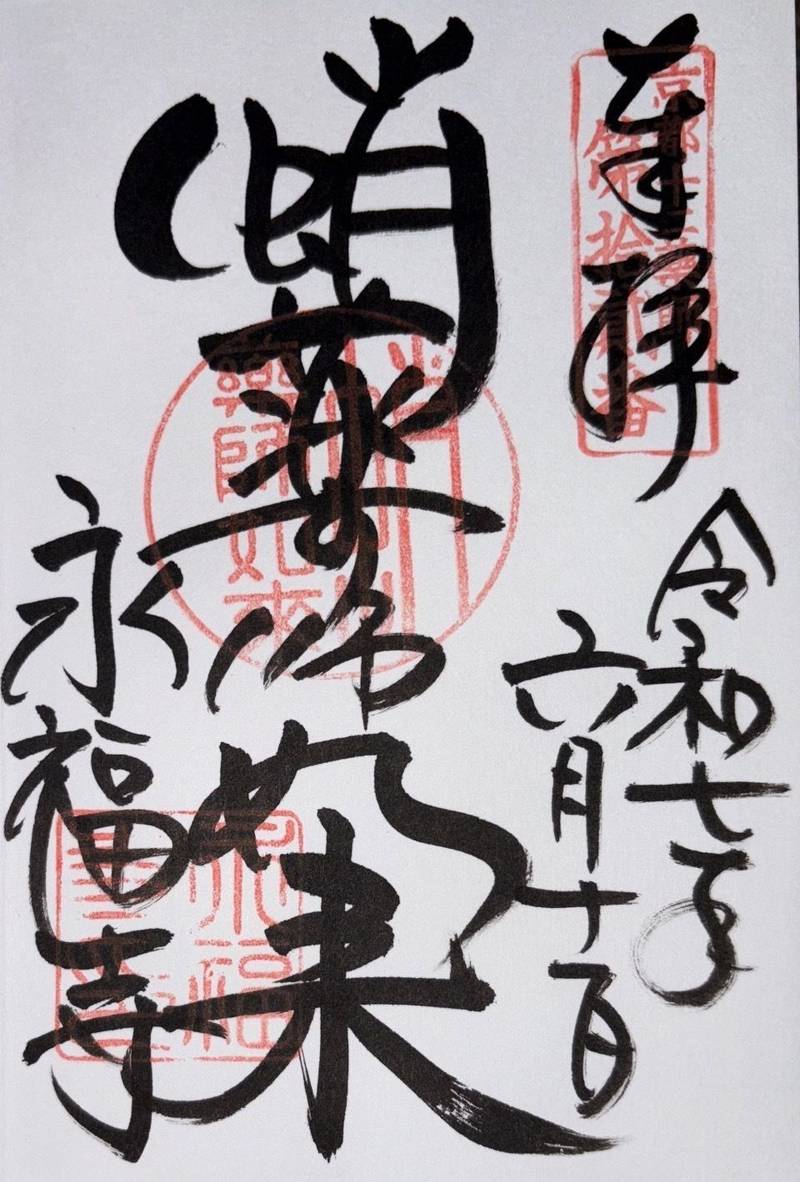 奉拝
京都十二薬師
第拾貳番
令和七年
六月十一日
蛸薬師如来
薬師如来
永福寺
永福